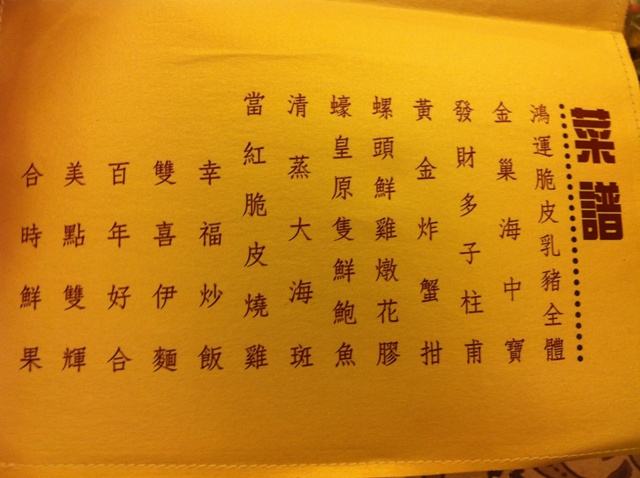 菜譜
鴻運脆皮乳豬全體
金巢海中寶
發財多子柱甫
黃金炸蟹拑
螺頭鮮雞燉花膠
蠔皇原隻鮮鮑魚
清蒸大海斑
當紅脆皮燒雞
幸福炒飯
雙喜伊麵
百年好合
美點雙輝
合時鮮果